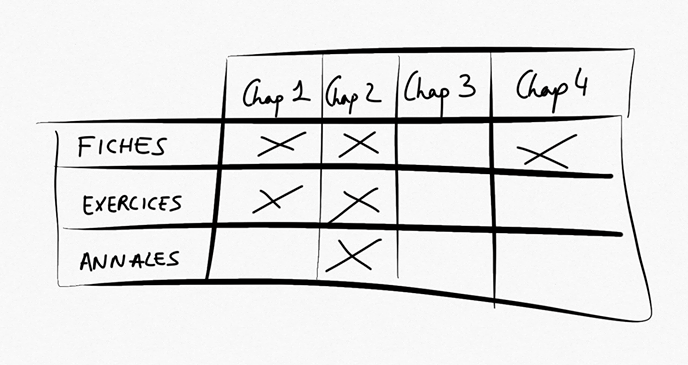 Chap 1 Chap 2 Chap 3 Chap 4
FICHES X X X
EXERCICES X X
ANNALES X